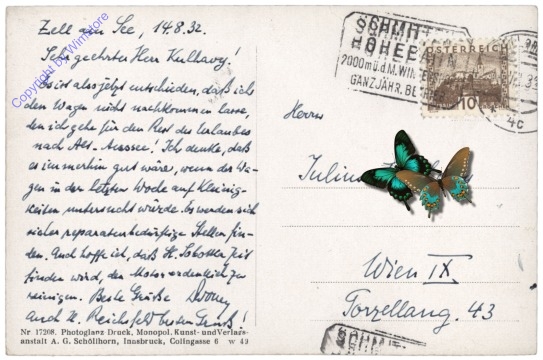 Zell am See, 14.8.32.
Sehr geehrter Herr Kulhavy!
Es ist also jetzt entschieden, daß ich
den Wagen nicht nachkommen lasse,
den ich gehe für den Rest des Urlaubes
nach Alt-Aussee. Ich denke, daß
es immerhin gut wäre, wenn der Wa-
gen in der letzten Woche auf Kleinig-
keiten untersucht würde. Es werden sich
sicher reparaturbedürftige Stellen fin-
den. Auch hoffe ich, daß H. Zeit
finden wird, den Motor ordentlich zu
reinigen. Beste Grüße
Auch H. Reichsfeld besten Gruß!
Nr 17208. Photoglanz Druck, Monopol. Kunst- und Verlags-
anstalt A. G. Schöllhorn, Innsbruck, Colingasse 6 w 49
Copyright by Wimstore
SCHMITTEN
HÖHE
2000m ü.d.M.
GANZJÄHR. BE
ÖSTERREICH
10
4c
Herrn
Julius
Wien IX
Porzellang. 43
SCHMITT